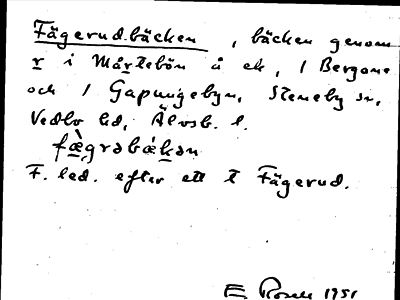 Fägerudbäcken, bäcken genom
r i Mårtebön å ek, 1 Bergane
och 1 Gapungebyn, Steneby sn,
Vedbo hd, Älvsb. l.
fæ̀grəbàkən
F. led. efter ett t Fägerud.
E Rosell 1951